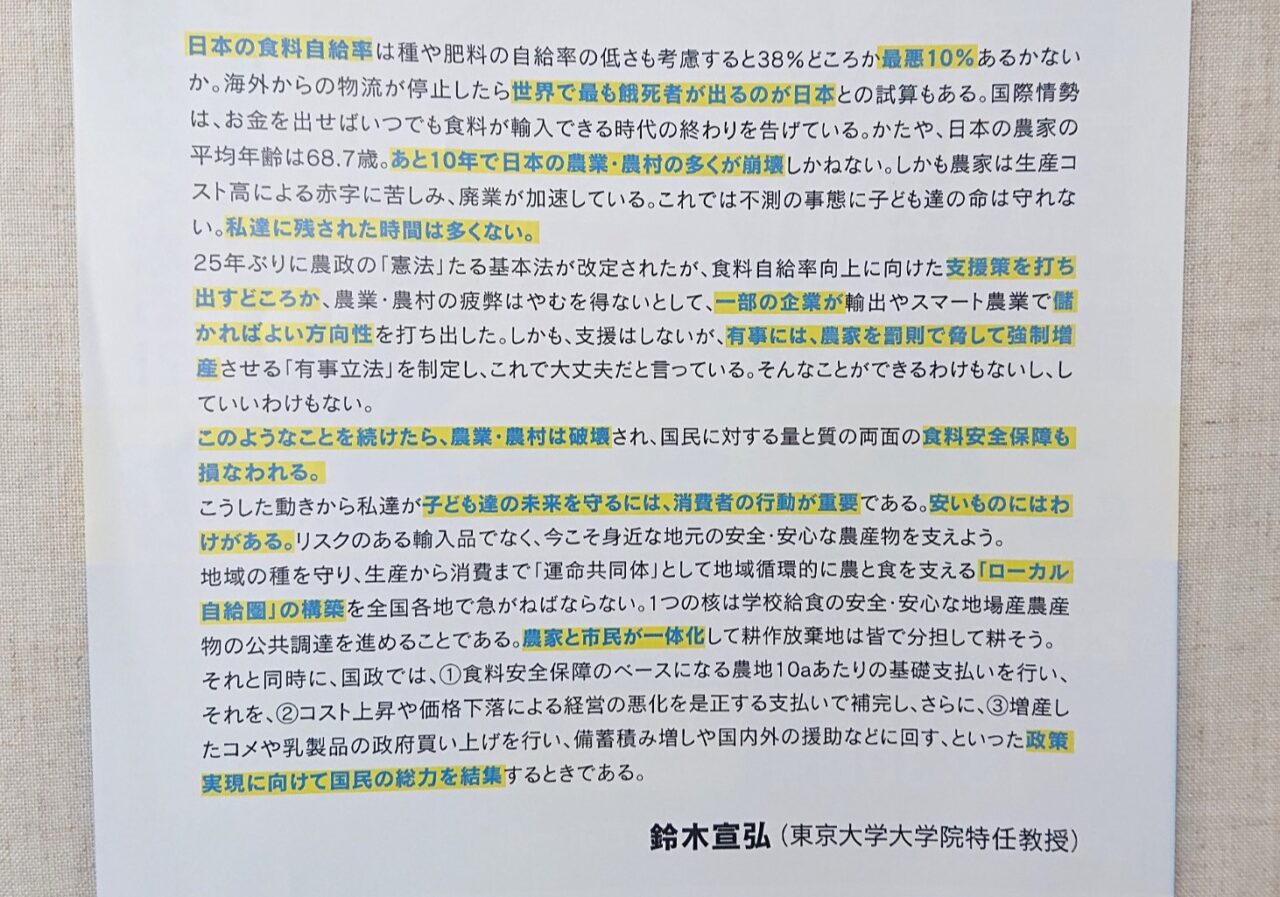 日本の食料自給率は種や肥料の自給率の低さも考慮すると38%どころか最悪10%あるかない
か。海外からの物流が停止したら世界で最も餓死者が出るのが日本との試算もある。国際情勢
は、お金を出せばいつでも食料が輸入できる時代の終わりを告げている。かたや、日本の農家の
平均年齢は68.7歳。あと10年で日本の農業・農村の多くが崩壊しかねない。しかも農家は生産コ
スト高による赤字に苦しみ、廃業が加速している。これでは不測の事態に子ども達の命は守れな
い。私達に残された時間は多くない。
25年ぶりに農政の「憲法」たる基本法が改定されたが、食料自給率向上に向けた支援策を打ち
出すどころか、農業・農村の疲弊はやむを得ないとして、一部の企業が輸出やスマート農業で儲
かればよい方向性を打ち出した。しかも、支援はしないが、有事には、農家を罰則で脅して強制増
産させる「有事立法」を制定し、これで大丈夫だと言っている。そんなことができるわけもないし、し
ていいわけもない。
このようなことを続けたら、農業・農村は破壊され、国民に対する量と質の両面の食料安全保障も
損なわれる。
こうした動きから私達が子ども達の未来を守るには、消費者の行動が重要である。安いものにはわ
けがある。リスクのある輸入品でなく、今こそ身近な地元の安全・安心な農産物を支えよう。
地域の種を守り、生産から消費まで「運命共同体」として地域循環的に農と食を支える「ローカル
自給圏」の構築を全国各地で急がねばならない。1つの核は学校給食の安全・安心な地場産農産
物の公共調達を進めることである。農家と市民が一体化して耕作放棄地は皆で分担して耕そう。
それと同時に、国政では、①食料安全保障のベースになる農地10aあたりの基礎支払いを行い、
それを、②コスト上昇や価格下落による経営の悪化を是正する支払いで補完し、さらに、③増産し
たコメや乳製品の政府買い上げを行い、備蓄積み増しや国内外の援助などに回す、といった政策
実現に向けて国民の総力を結集するときである。
鈴木宣弘（東京大学大学院特任教授）